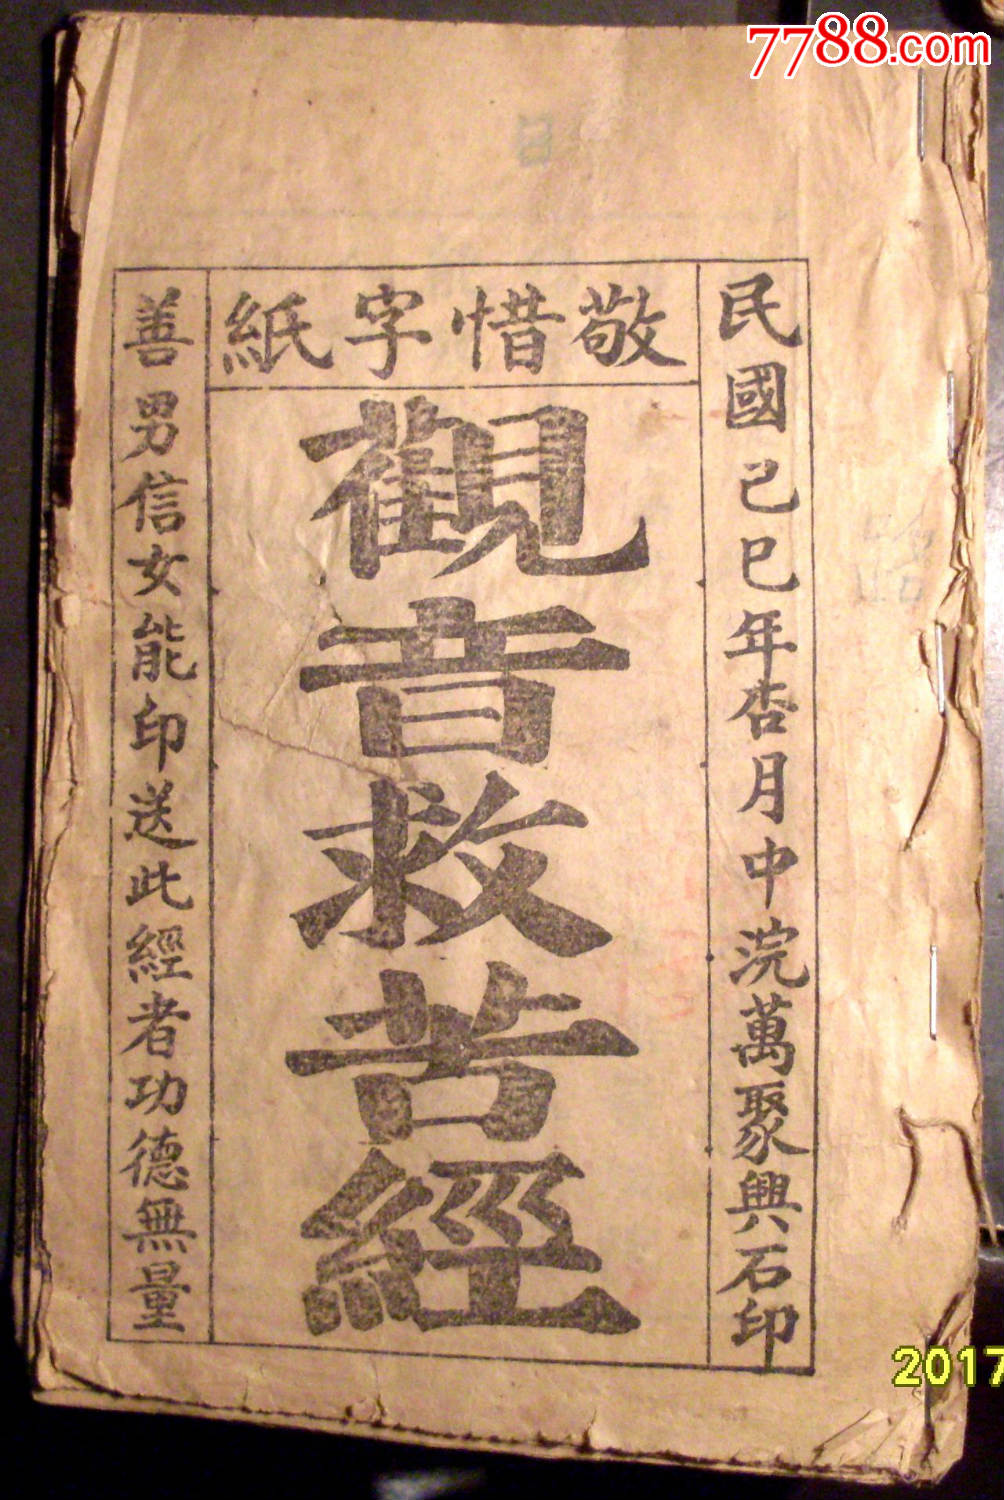 7788.com
敬惜字紙
民國己巳年杏月中浣萬聚興石印
觀音救苦經
善男信女能印送此經者功德無量
2017